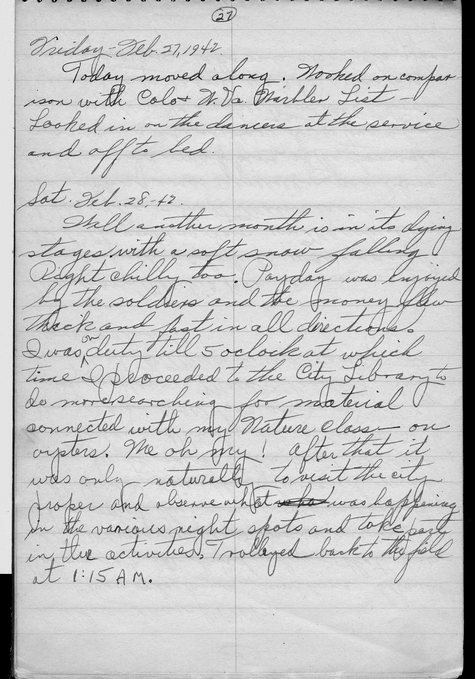 27
Friday - Feb. 27, 1942
Today moved along. Worked on compar-
ison with Colo & W. Va. Warbler List -
Looked in on the dancers at the service
and off to bed.
Sat. Feb. 28-42.
Well another month is in its dying
stages with a soft snow falling.
Right chilly too. Payday was enjoyed
by the soldiers and the money flew
thick and fast in all directions.
I was on duty till 5 oclock at which
time I proceeded to the City Library to
do more searching for material
connected with my Nature class - on
oysters. Me oh my! After that it
was only naturally to visit the city
proper and observe what was happening
in the various night spots and take part
in the activities. Trolleyed back to the field
at 1:15 AM.